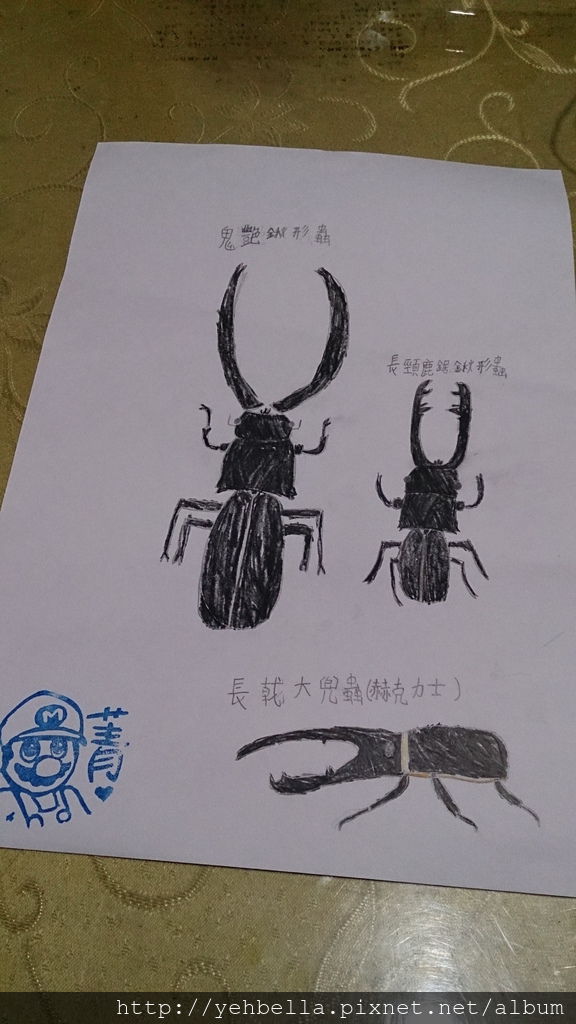 鬼艷鍬形蟲
長頸鹿鋸鍬形蟲
長戟大兜蟲(赫克力士)
M
菁
http://yehbella.pixnet.net/album